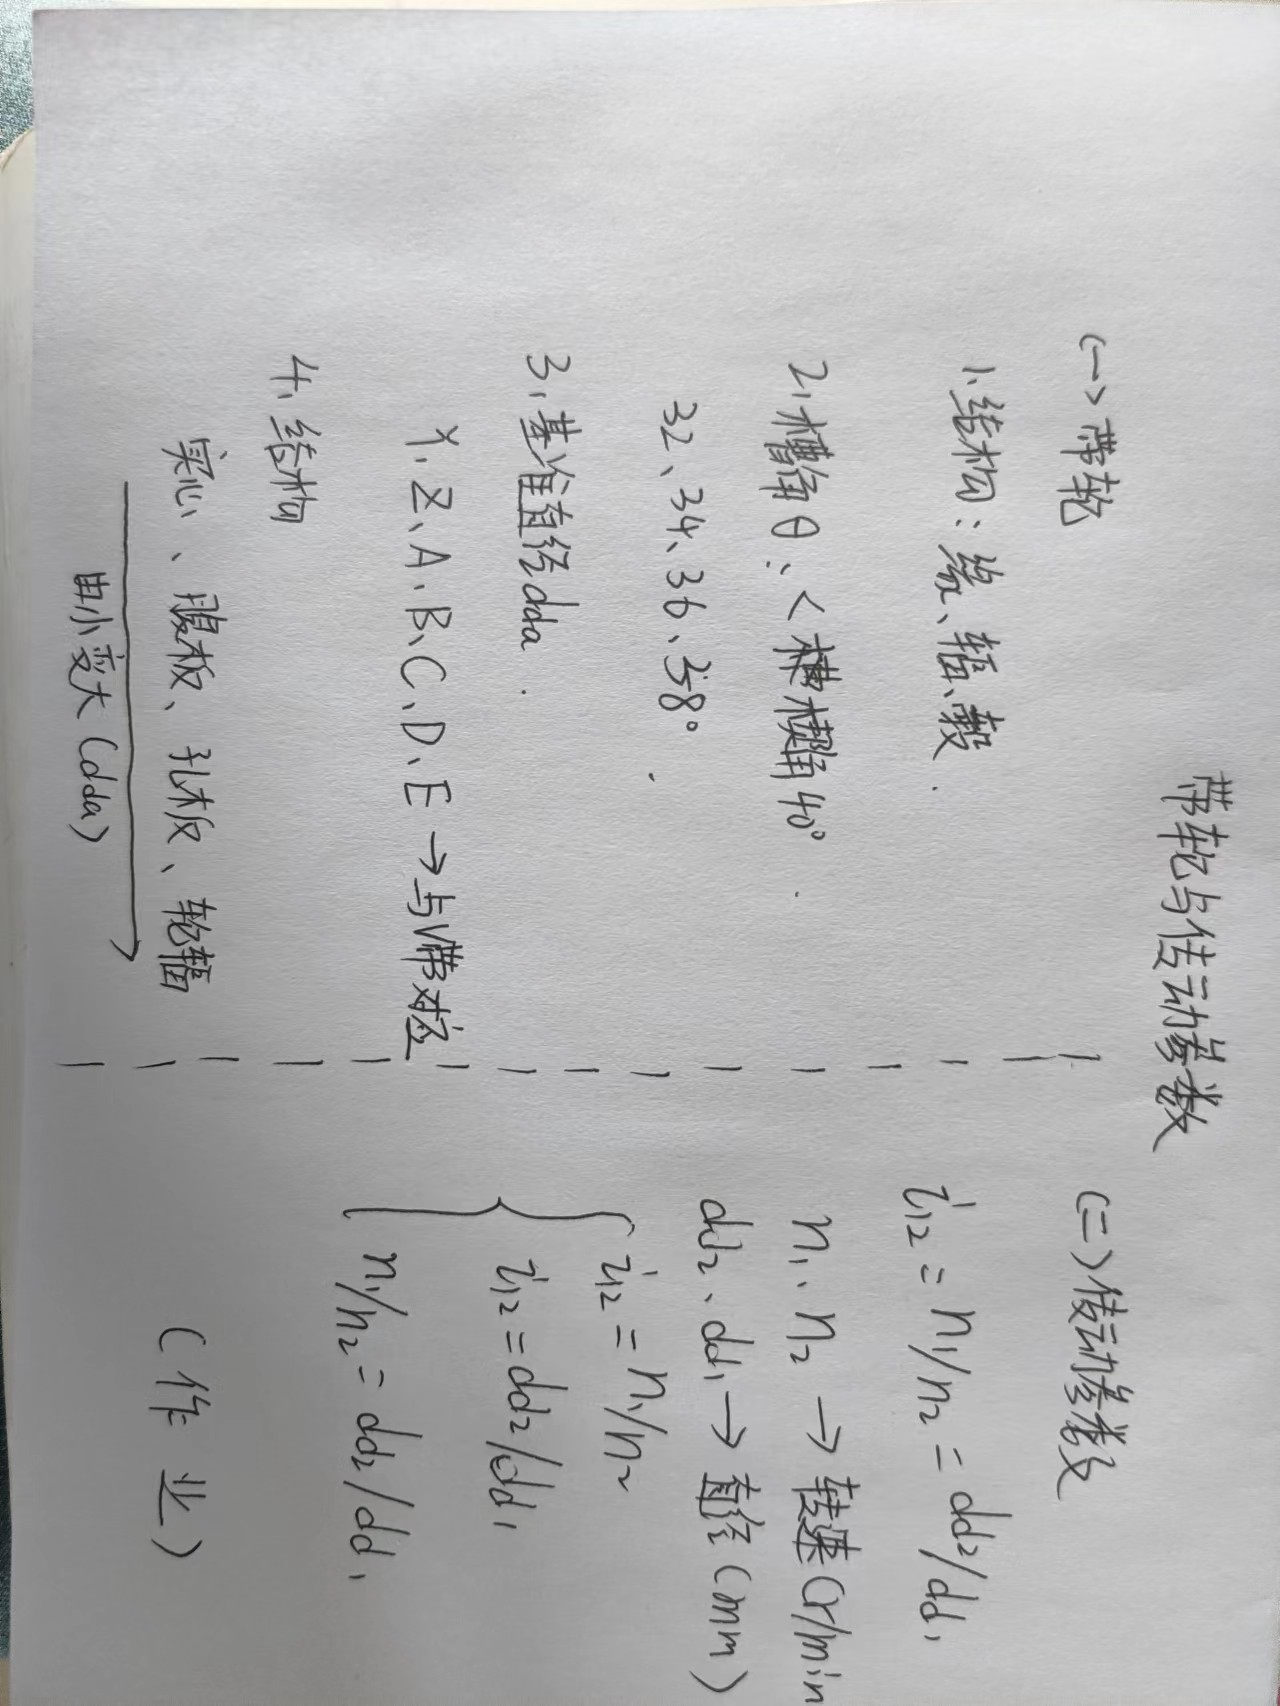 带轮与传动参数
(一)带轮
1.结构:缘、辐、毂.
2.槽角θ:<横楔角40°.
32、34、36、38°.
3.基准直径dda.
Y、Z、A、B、C、D、E→与V带对应
4.结构
实心、腹板、孔板、轮辐
由小变大(dda)
(二)传动参数
i12=n1/n2=dd2/dd1
n1、n2→转速(r/min
dd2、dd1→直径(mm)
i12=n1/n2
i12=dd2/dd1
n1/n2=dd2/dd1
(作业)